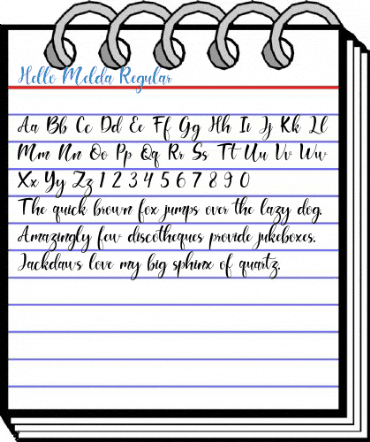 Hello Melda Regular
Aa Bb Cc Dd Ee Ff Gg Hh Ii Jj Kk Ll
Mm Nn Oo Pp Qq Rr Ss Tt Uu Vv Ww
Xx Yy Zz 1 2 3 4 5 6 7 8 9 0
The quick brown fox jumps over the lazy dog.
Amazingly few discotheques provide jukeboxes.
Jackdaws love my big sphinx of quartz.